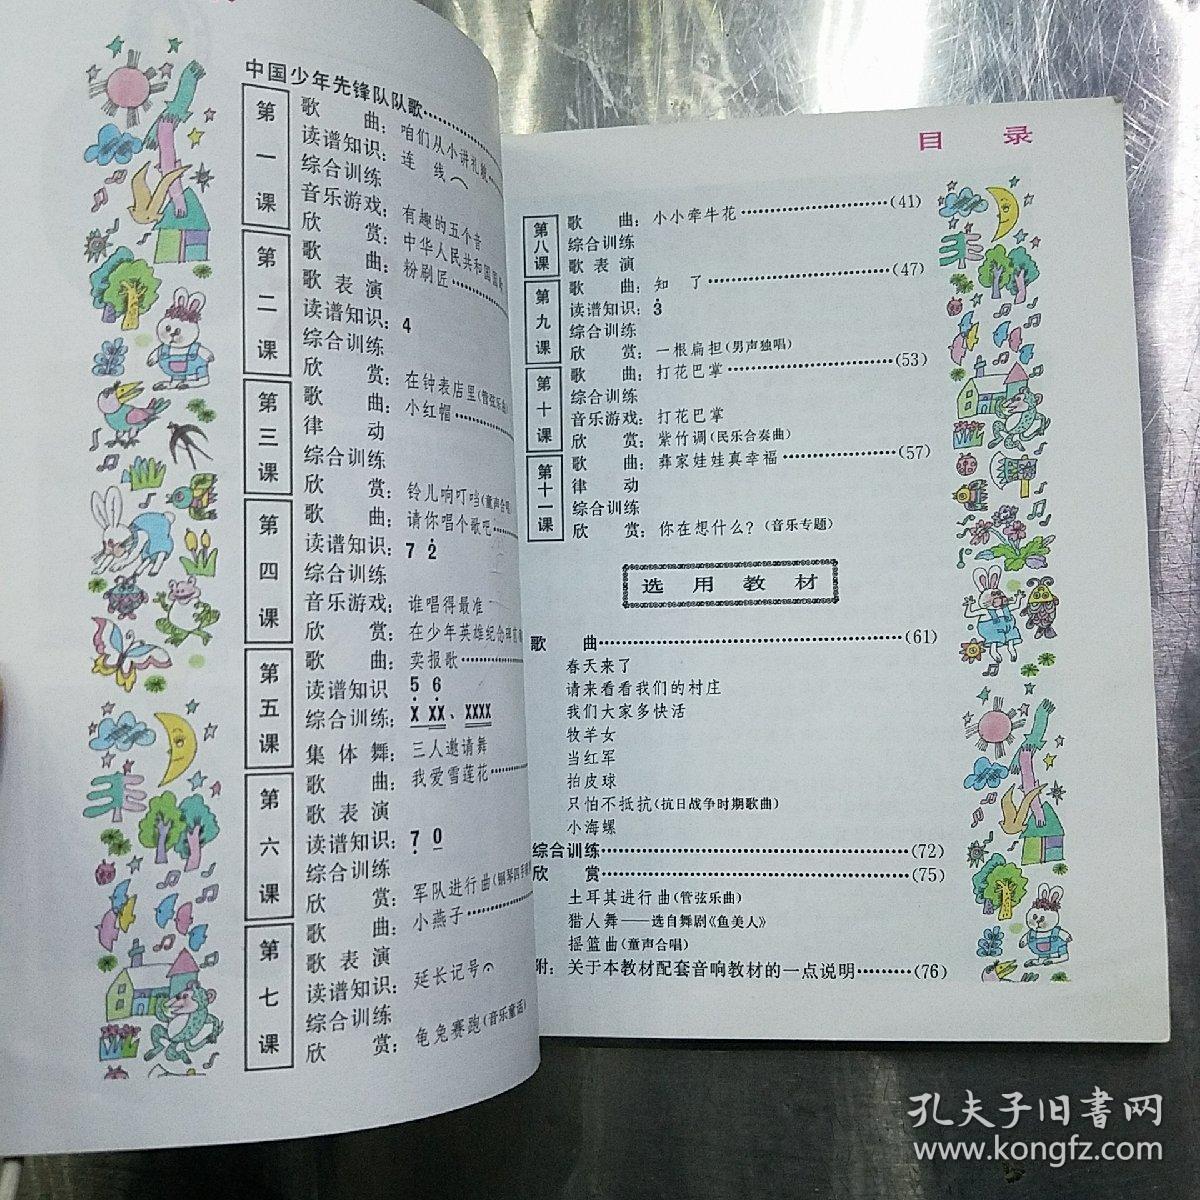 中国少年先锋队队歌
第一课
歌 曲：咱们从小讲礼貌
读谱知识：连 线
综合训练
音乐游戏：有趣的五个音
欣 赏：中华人民共和国国歌
第二课
歌 曲：粉刷匠
歌表演
读谱知识：4
综合训练
欣 赏：在钟表店里(管弦乐曲)
第三课
歌 曲：小红帽
律 动
综合训练
欣 赏：铃儿响叮当(童声合唱)
第四课
歌 曲：请你唱个歌吧
读谱知识：7 2
综合训练
音乐游戏：谁唱得最准
欣 赏：在少年英雄纪念碑前
第五课
歌 曲：卖报歌
读谱知识 5 6
综合训练：X XX、XXXX
集体舞：三人邀请舞
第六课
歌 曲：我爱雪莲花
歌表演
读谱知识：7 0
综合训练
欣 赏：军队进行曲(钢琴四手联
第七课
歌 曲：小燕子
歌表演
读谱知识：延长记号
综合训练
欣 赏：龟兔赛跑(音乐童话)
目 录
第八课
歌 曲：小小牵牛花………………(41)
综合训练
歌表演
第九课
歌 曲：知 了………………(47)
读谱知识：3
综合训练
欣 赏：一根扁担(男声独唱)
第十课
歌 曲：打花巴掌………………(53)
综合训练
音乐游戏：打花巴掌
欣 赏：紫竹调(民乐合奏曲)
第十一课
歌 曲：彝家娃娃真幸福………………(57)
律 动
综合训练
欣 赏：你在想什么？(音乐专题)
选用教材
歌 曲………………(61)
春天来了
请来看看我们的村庄
我们大家多快活
牧羊女
当红军
拍皮球
只怕不抵抗(抗日战争时期歌曲)
小海螺
综合训练………………(72)
欣 赏………………(75)
土耳其进行曲(管弦乐曲)
猎人舞——选自舞剧《鱼美人》
摇篮曲(童声合唱)
附：关于本教材配套音响教材的一点说明………(76)
孔夫子旧书网
www.kongfz.com